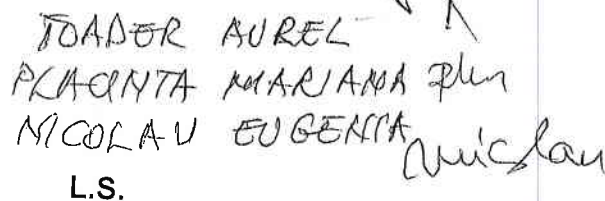 TOADER AUREL
PLACINTA MARIANA
NICOLAU EUGENIA Nicolau
L.S.